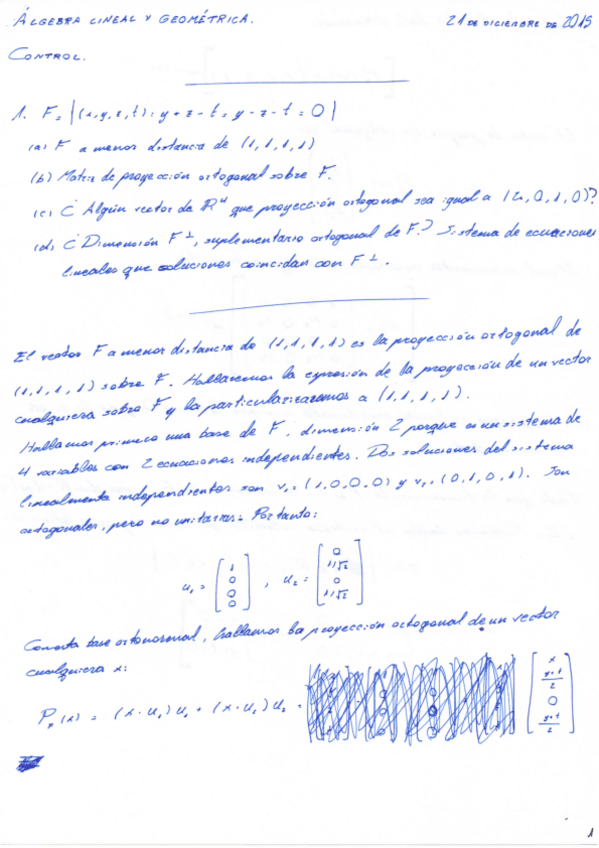 ÁLGEBRA LINEAL Y GEOMÉTRICA. 21 DE DICIEMBRE DE 2015
CONTROL.
1. F = {(x,y,z,t): y+z-t = y-z-t = 0}
(a) F a menor distancia de (1,1,1,1)
(b) Matriz de proyección ortogonal sobre F.
(c) ¿Algún vector de ℝ⁴ que proyección ortogonal sea igual a (2,0,1,0)?
(d) ¿Dimensión F⊥, suplementario ortogonal de F? Sistema de ecuaciones
lineales que soluciones coincidan con F⊥.
El vector F a menor distancia de (1,1,1,1) es la proyección ortogonal de
(1,1,1,1) sobre F. Hallaremos la expresión de la proyección de un vector
cualquiera sobre F y la particularizaremos a (1,1,1,1).
Hallamos primero una base de F, dimensión 2 porque es un sistema de
4 variables con 2 ecuaciones independientes. Dos soluciones del sistema
linealmente independientes son v₁=(1,0,0,0) y v₂=(0,1,0,1). Son
ortogonales, pero no unitarias. Por tanto:
u₁ = [1 0 0 0], u₂ = [0 1/√2 0 1/√2]
Con esta base ortonormal, hallamos la proyección ortogonal de un vector
cualquiera x:
P_F(x) = (x·u₁)u₁ + (x·u₂)u₂ = [x (y+t)/2 0 (y+t)/2]
1